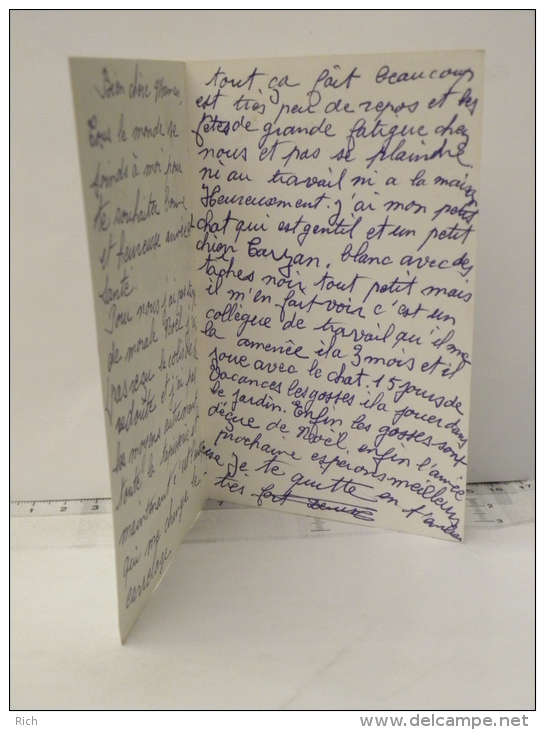 Bien chère
tous le monde se
joinds à moi pour
te souhaiter bonne
et heureuse année et
santé
Pour nous j'ai pas trop
de morale Noël j'ai
pas reçu le colis de
redoute et j'ai pas
les moyens autrement
toute la
maintenant c'est
qui me change le
carrelage
tout ça fait beaucoup
est très peu de repos et les
fêtes de grande fatigue chez
nous et pas se plaindre
ni au travail ni a la maison
Heureusement j'ai mon petit
chat qui est gentil et un petit
chien Tarzan, blanc avec des
taches noir tout petit mais
il m'en fait voir c'est un
collègue de travail qu'il me
la amenée ila 3 mois et il
joue avec le chat. 15 jours de
Vacances les gosses ila jouer dans
le jardin. Enfin les gosses sont
déçue de Noël. enfin l'année
prochaine esperons meilleurs
Je te quitte en t'
très fort
Rich
www.delcampe.net